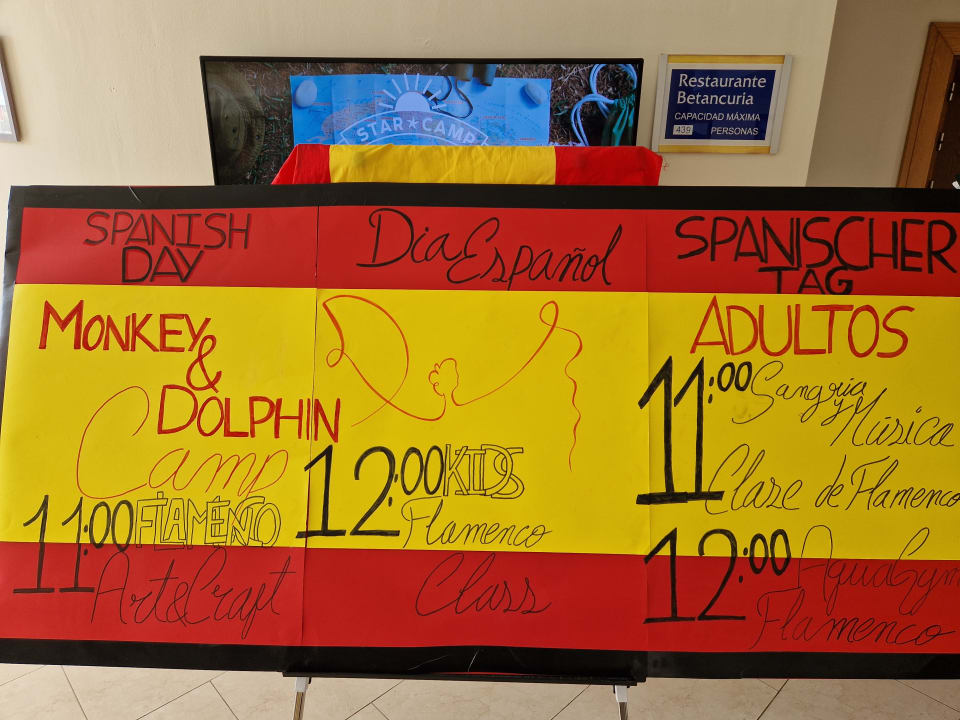 STAR★CAMP
Restaurante
Betancuria
CAPACIDAD MÁXIMA
439 PERSONAS
SPANISH
DAY
MONKEY
&
DOLPHIN
Camp
11:00 FLAMENCO
Art&Craft
Dia Español
12:00 KIDS
Flamenco
Class
SPANISCHER
TAG
ADULTOS
11:00 Sangria
y Música
Claze de Flamenco
12:00 AquaGym
Flamenco